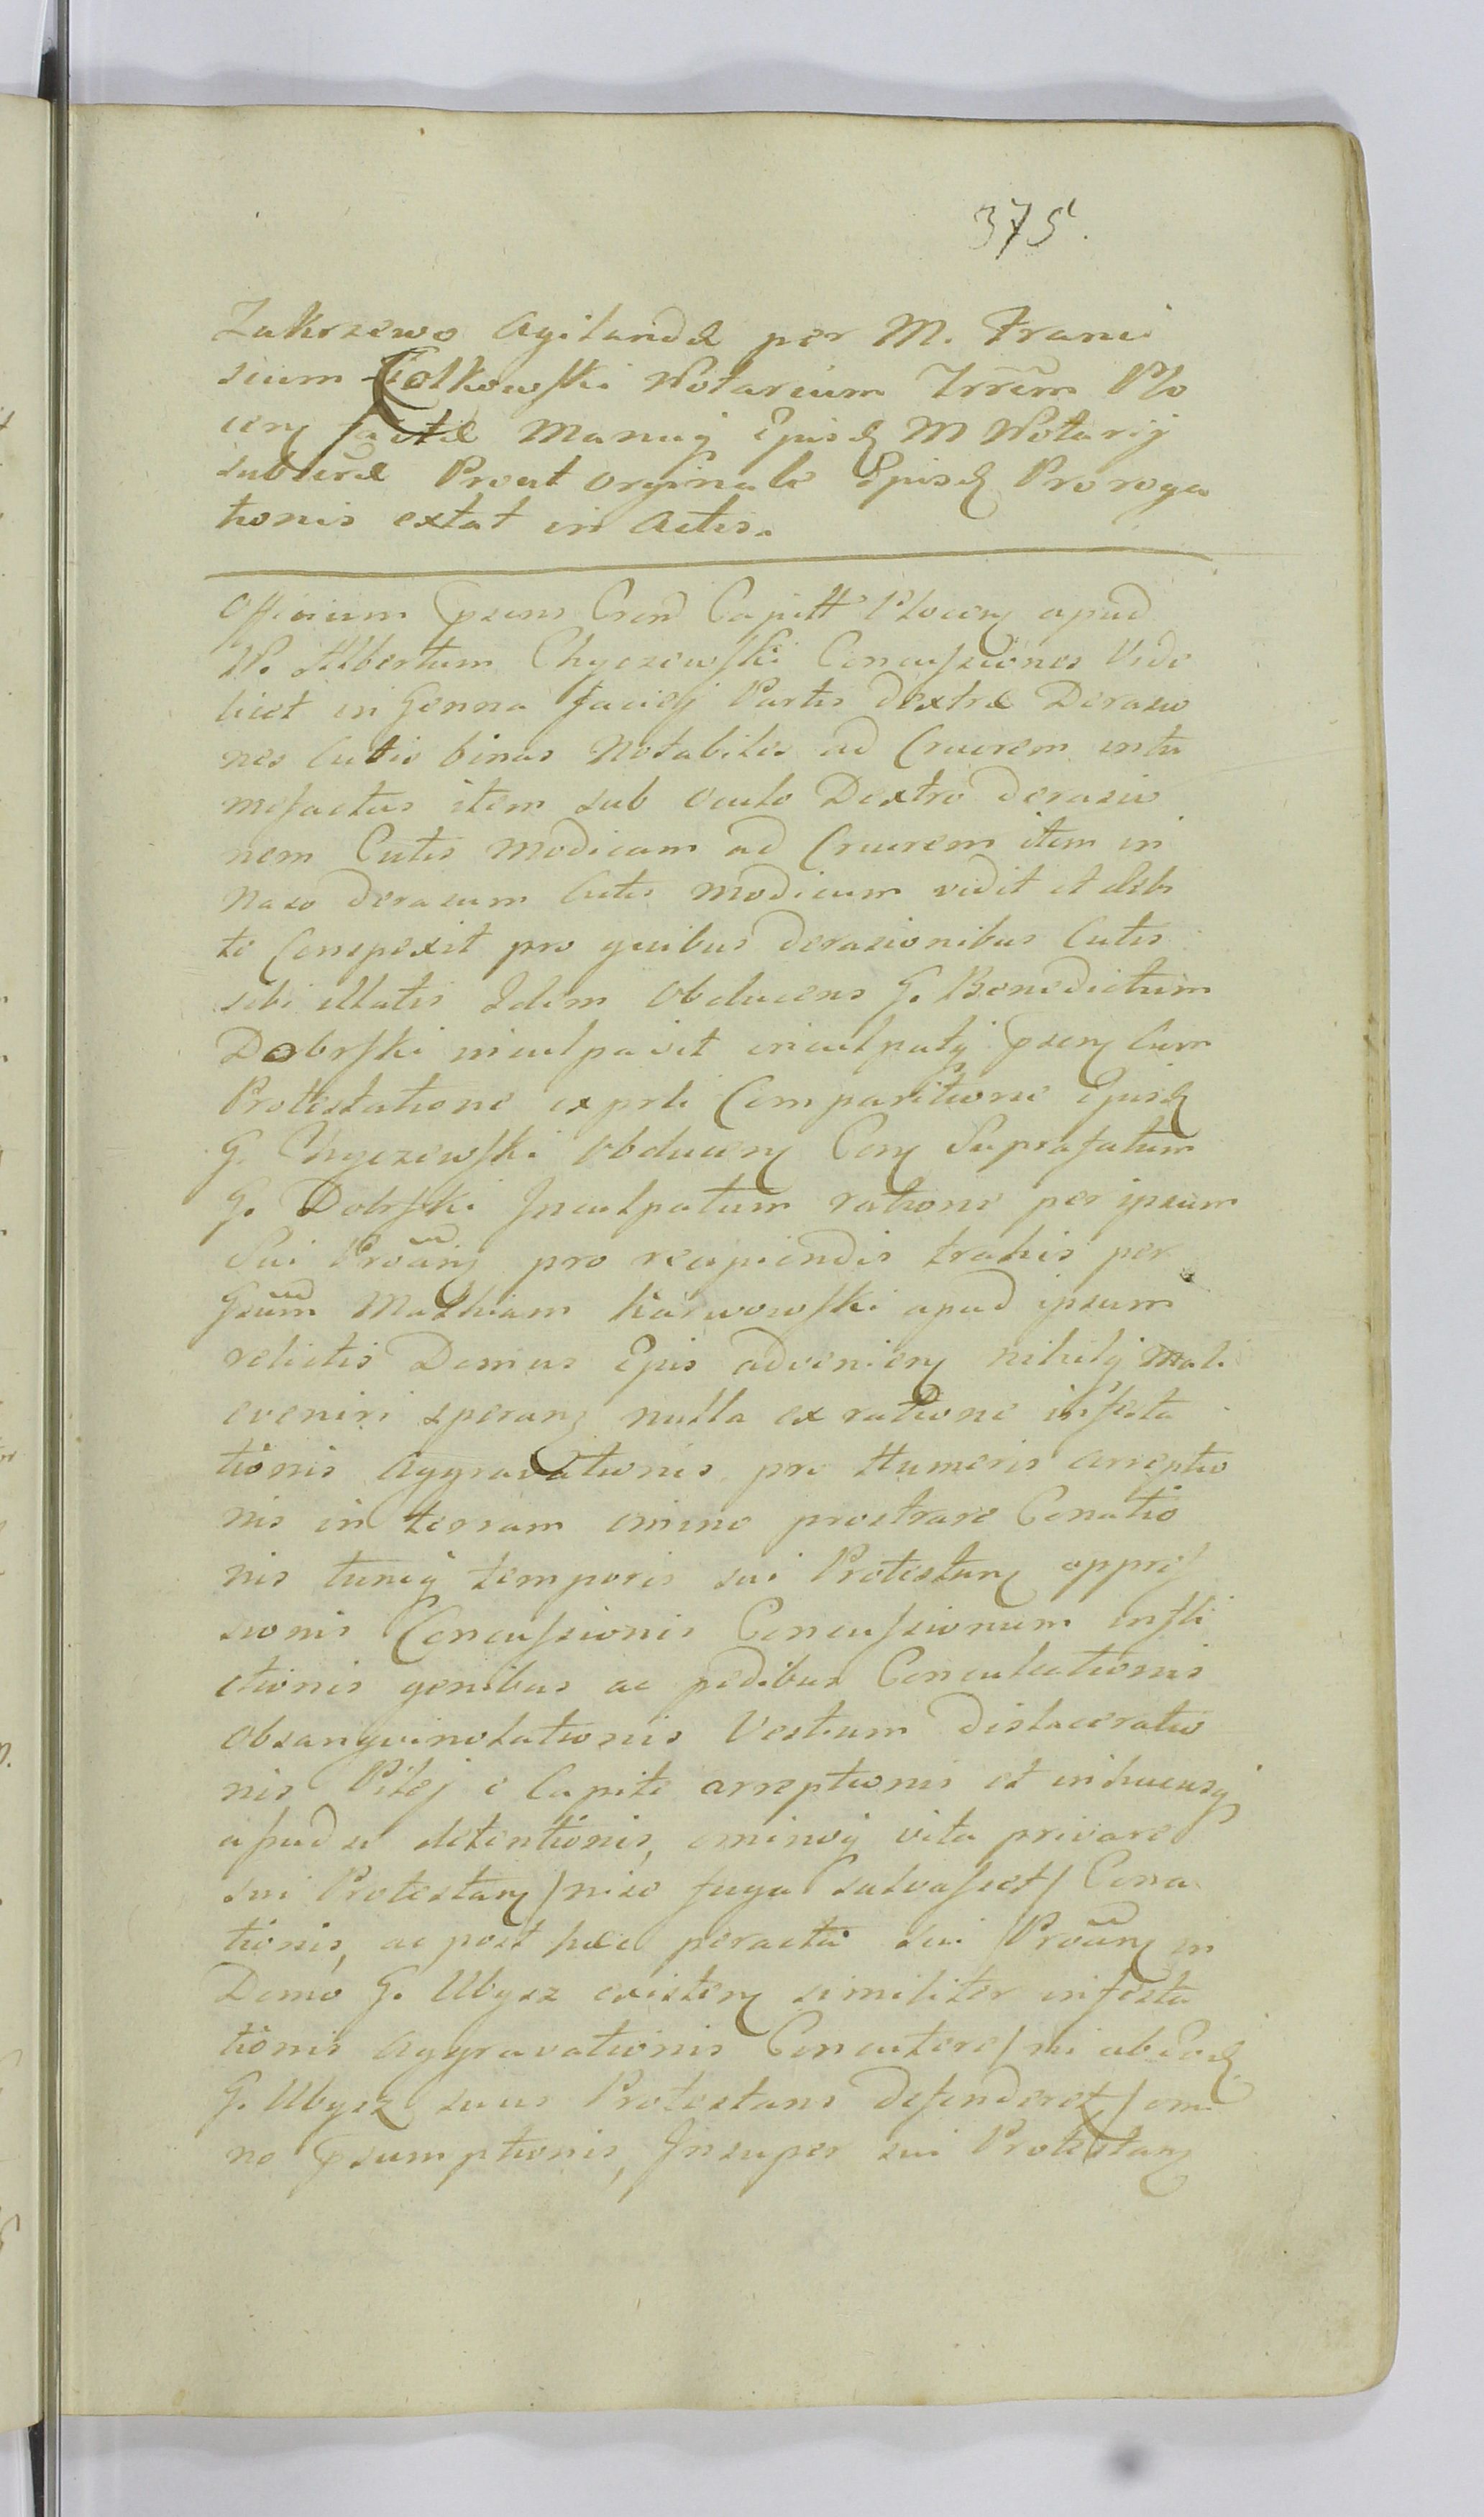 375.
Zakrzewo Agitandæ per M. Franci
scum Ciolkowski Notarium Trrem Plo
cen factæ Manuq Episd M Notarij
subscræ Prout Orginale Episd Proroga
tionis extat in Actis.
Officium Psens Cren Capitt Plocen apud
N. Albertum Chyczewski Concussiones Vide
licet in Genna faciej Partis dextræ Derasio
nes Cutis binas Notabiles ad Cruorem intu
mefactas item sub Oculo Dextro derasio
nem Cutis Modicam ad Cruorem item in
Naso derasum Cutis modicum vidit et
te Conspexit pro quibus derasionibus Cutis
sibi illatis Idem Obducens G. Benedictum
Dobrski inculpavit inculpatq Psens Cum
Protestatione ex prti Comparitione Episd
G. Chyczewski Obducen Con Suprafatum
G. Dobrski Inculpatum ratione per ipsum
Sui Protñ pro recipiendis trahis per
Gsum Mathiam Karwowski apud ipsum
relictis Domus Epis advenien nihilq Mali
eveniri speran nulla ex ratione infesta
tionis Aggravationis pre Humeris arreptio
nis in terram omino prostrare Conatio
nis tuncq temporis sui Protestan oppres
sionis Concussionis Concussionum infli
ctionis genibus ac pedibus Conculcationis
obsangvinolationis Vestium dislaceratio
nis Pilej e Capite arreptionis et in hucusq
apud se detentionis, ominoq vita privare
sui Protestan / niso fuga salvasset / Cona
tionis, ac post hæc peracta sui Protñ in
Domo G. Ubysz existen similiter infesta
tionis Aggravationis Concutere / ni ab Eod
G. Ubysz suus Protestans defenderet / omi
no Psumptionis, Insuper sui Protestan